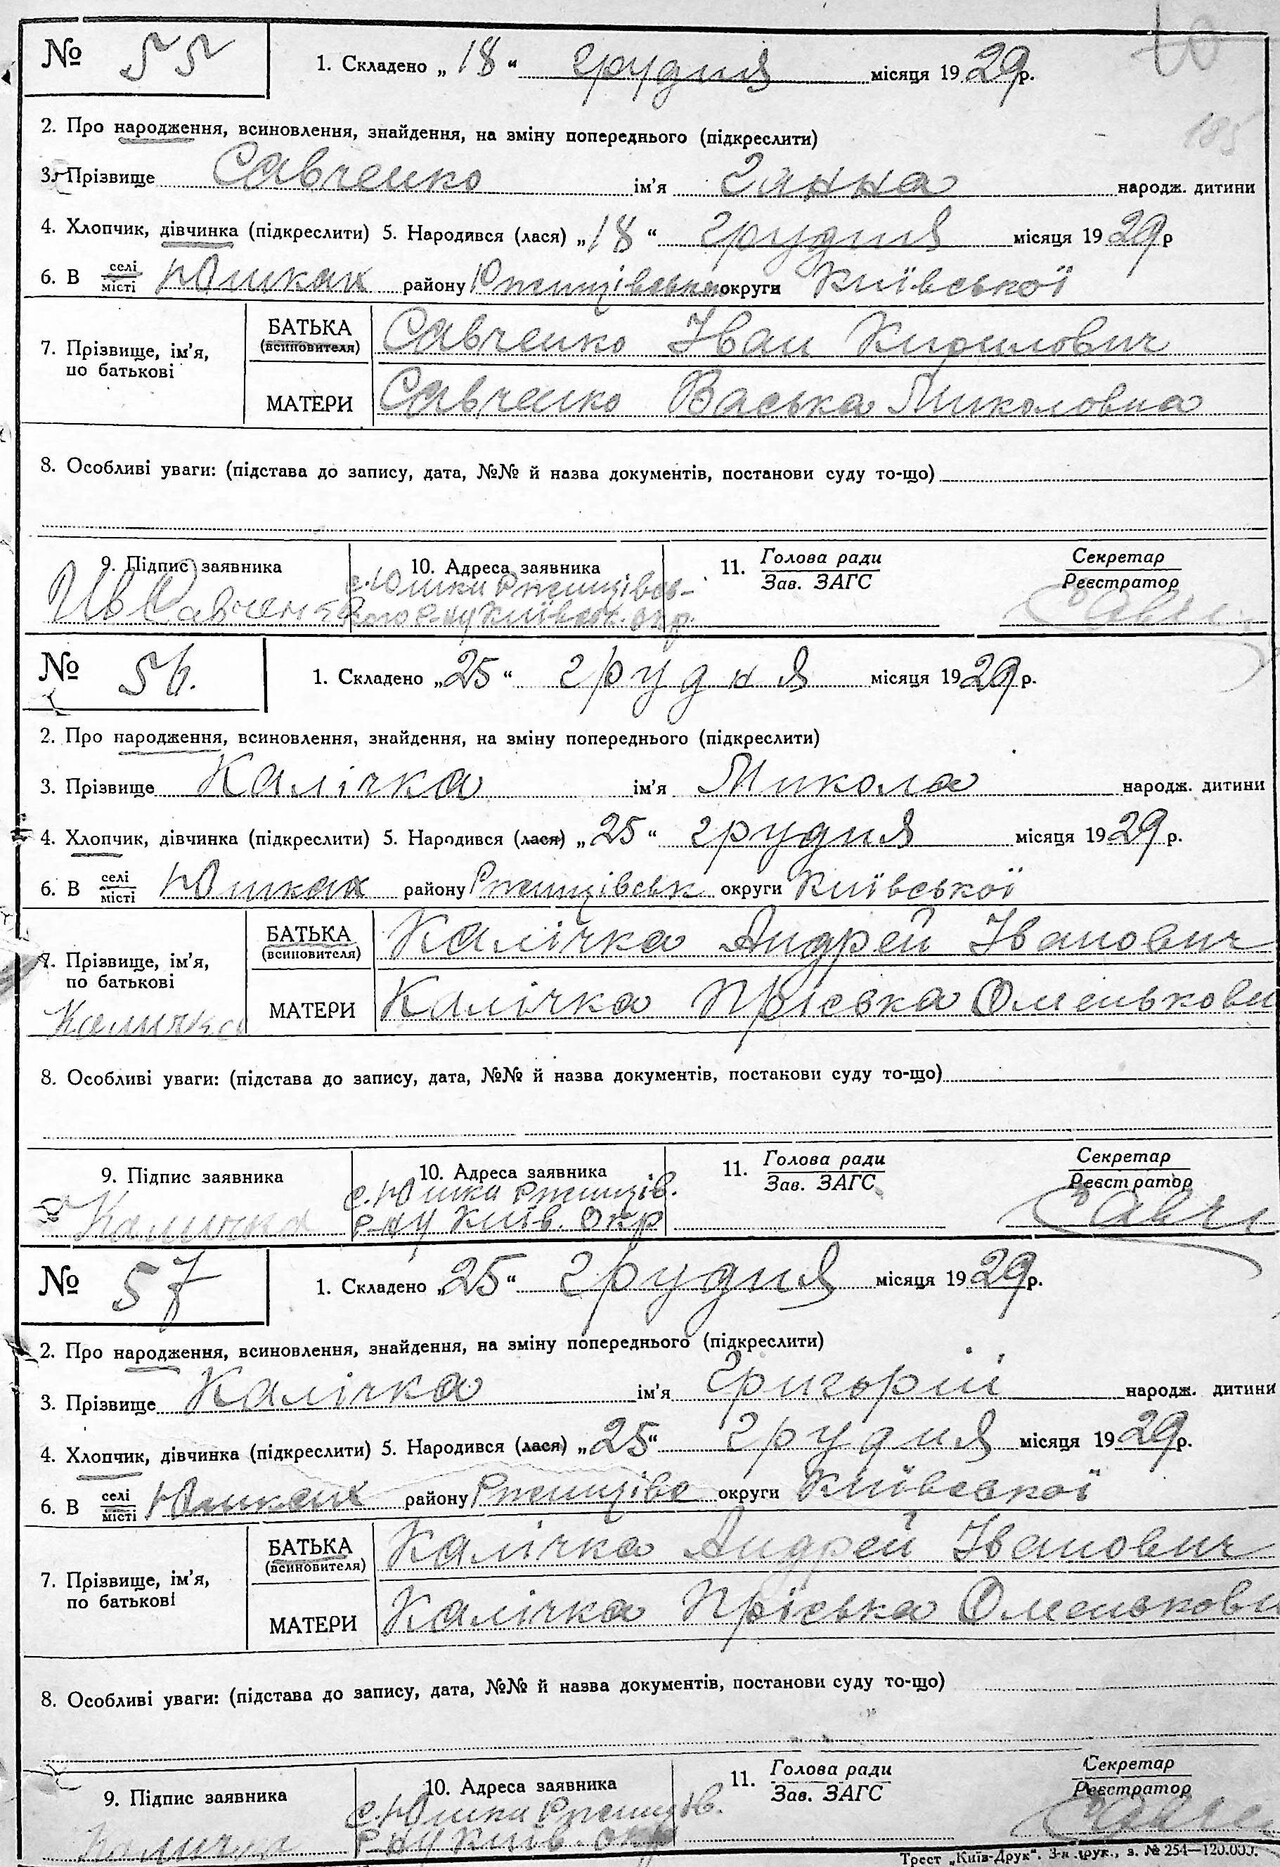 40
185
№ 55 1. Складено „18“ грудня місяця 1929 р.
2. Про народження, всиновлення, знайдення, на зміну попереднього (підкреслити)
3. Прізвище Савченко ім'я Ганна народж. дитини
4. Хлопчик, дівчинка (підкреслити) 5. Народився (лася) „18“ грудня місяця 1929 р
6. В селі місті Юшках району Ржищівська округи Київської
7. Прізвище, ім'я, по батькові БАТЬКА (всиновителя) Савченко Іван Кирилович
МАТЕРИ Савченко Васька Миколовна
8. Особливі уваги: (підстава до запису, дата, №№ й назва документів, постанови суду то-що)
9. Підпис заявника 10. Адреса заявника 11. Голова ради Зав. ЗАГС Секретар Реєстратор
Ив Савченко с. Юшки Ржищівсь-
кого р-ну Київськ. окр. Савч
№ 56. 1. Складено „25“ грудня місяця 1929 р.
2. Про народження, всиновлення, знайдення, на зміну попереднього (підкреслити)
3. Прізвище Калічка ім'я Микола народж. дитини
4. Хлопчик, дівчинка (підкреслити) 5. Народився (лася) „25“ грудня місяця 1929 р.
6. В селі місті Юшках району Ржищівськ округи Київської
7. Прізвище, ім'я, по батькові БАТЬКА (всиновителя) Калічка Андрей Іванович
Каличка МАТЕРИ Калічка Пріська Оменькови
8. Особливі уваги: (підстава до запису, дата, №№ й назва документів, постанови суду то-що)
9. Підпис заявника 10. Адреса заявника 11. Голова ради Зав. ЗАГС Секретар Реєстратор
Каличка с. Юшки Ржищів.
р-ну Київ. Окр Савч
№ 57 1. Складено „25“ грудня місяця 1929 р.
2. Про народження, всиновлення, знайдення, на зміну попереднього (підкреслити)
3. Прізвище Калічка ім'я Григорій народж. дитини
4. Хлопчик, дівчинка (підкреслити) 5. Народився (лася) „25“ грудня місяця 1929 р.
6. В селі місті Юшках району Ржищівс округи Київської
7. Прізвище, ім'я, по батькові БАТЬКА (всиновителя) Калічка Андрей Іванович
МАТЕРИ Калічка Пріська Оменькови
8. Особливі уваги: (підстава до запису, дата, №№ й назва документів, постанови суду то-що)
9. Підпис заявника 10. Адреса заявника 11. Голова ради Зав. ЗАГС Секретар Реєстратор
Каличка с. Юшки Ржищів.
р-ну Київ. окр Савче
Трест „Київ-Друк“. 3-я друк., з. № 254—120.000.